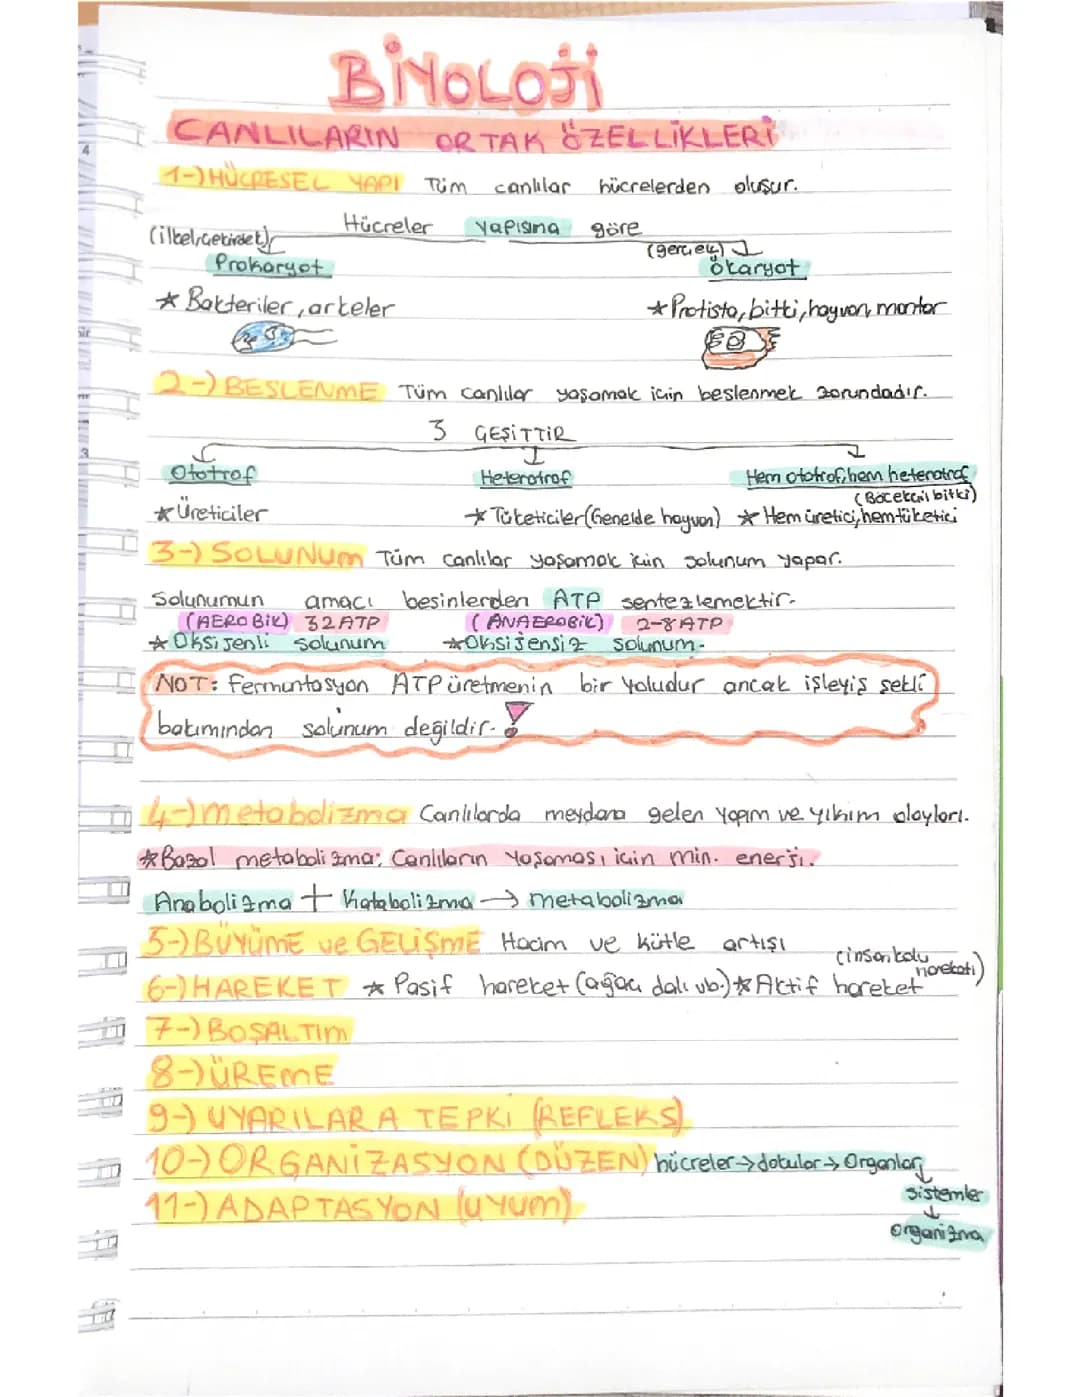 BİYOLOJİ
CANLILARIN ORTAK ÖZELLİKLERİ
1-) HÜCRESEL YAPI Tüm canlılar hücrelerden oluşur.
Hücreler yapısına göre
(ilkel, çekirdek) (gerçek)
Prokaryot ökaryot
* Bakteriler, arkeler * Protista, bitki, hayvan, mantar
2-) BESLENME Tüm canlılar yaşamak için beslenmek zorundadır.
3 ÇEŞİTTİR
Ototrof Heterotrof Hem ototrof, hem heterotrof
(Böcekçil bitki)
* Üreticiler * Tüketiciler (Genelde hayvan) * Hem üretici, hem tüketici
3-) SOLUNUM Tüm canlılar yaşamak için solunum yapar.
Solunumun amacı besinlerden ATP sentezlemektir.
(AEROBİK) 32 ATP (ANAEROBİK) 2-8 ATP
* Oksijenli solunum * Oksijensiz solunum.
NOT: Fermuntasyon ATP üretmenin bir yoludur ancak işleyiş şekli
bakımından solunum değildir. !
4-) metabolizma Canlılarda meydana gelen yapım ve yıkım olayları.
* Bazal metabolizma: Canlıların yaşaması için min. enerji.
Anabolizma + Katabolizma → metabolizma
5-) BÜYÜME ve GELİŞME Hacim ve kütle artışı
6-) HAREKET * Pasif hareket (ağaç dalı vb.) * Aktif hareket (insan kolu hareketi)
7-) BOŞALTIM
8-) ÜREME
9-) UYARILARA TEPKİ (REFLEKS)
10-) ORGANİZASYON (DÜZEN) hücreler → dokular → Organlar
↓ sistemler
11-) ADAPTASYON (UYUM)
↓ organizma